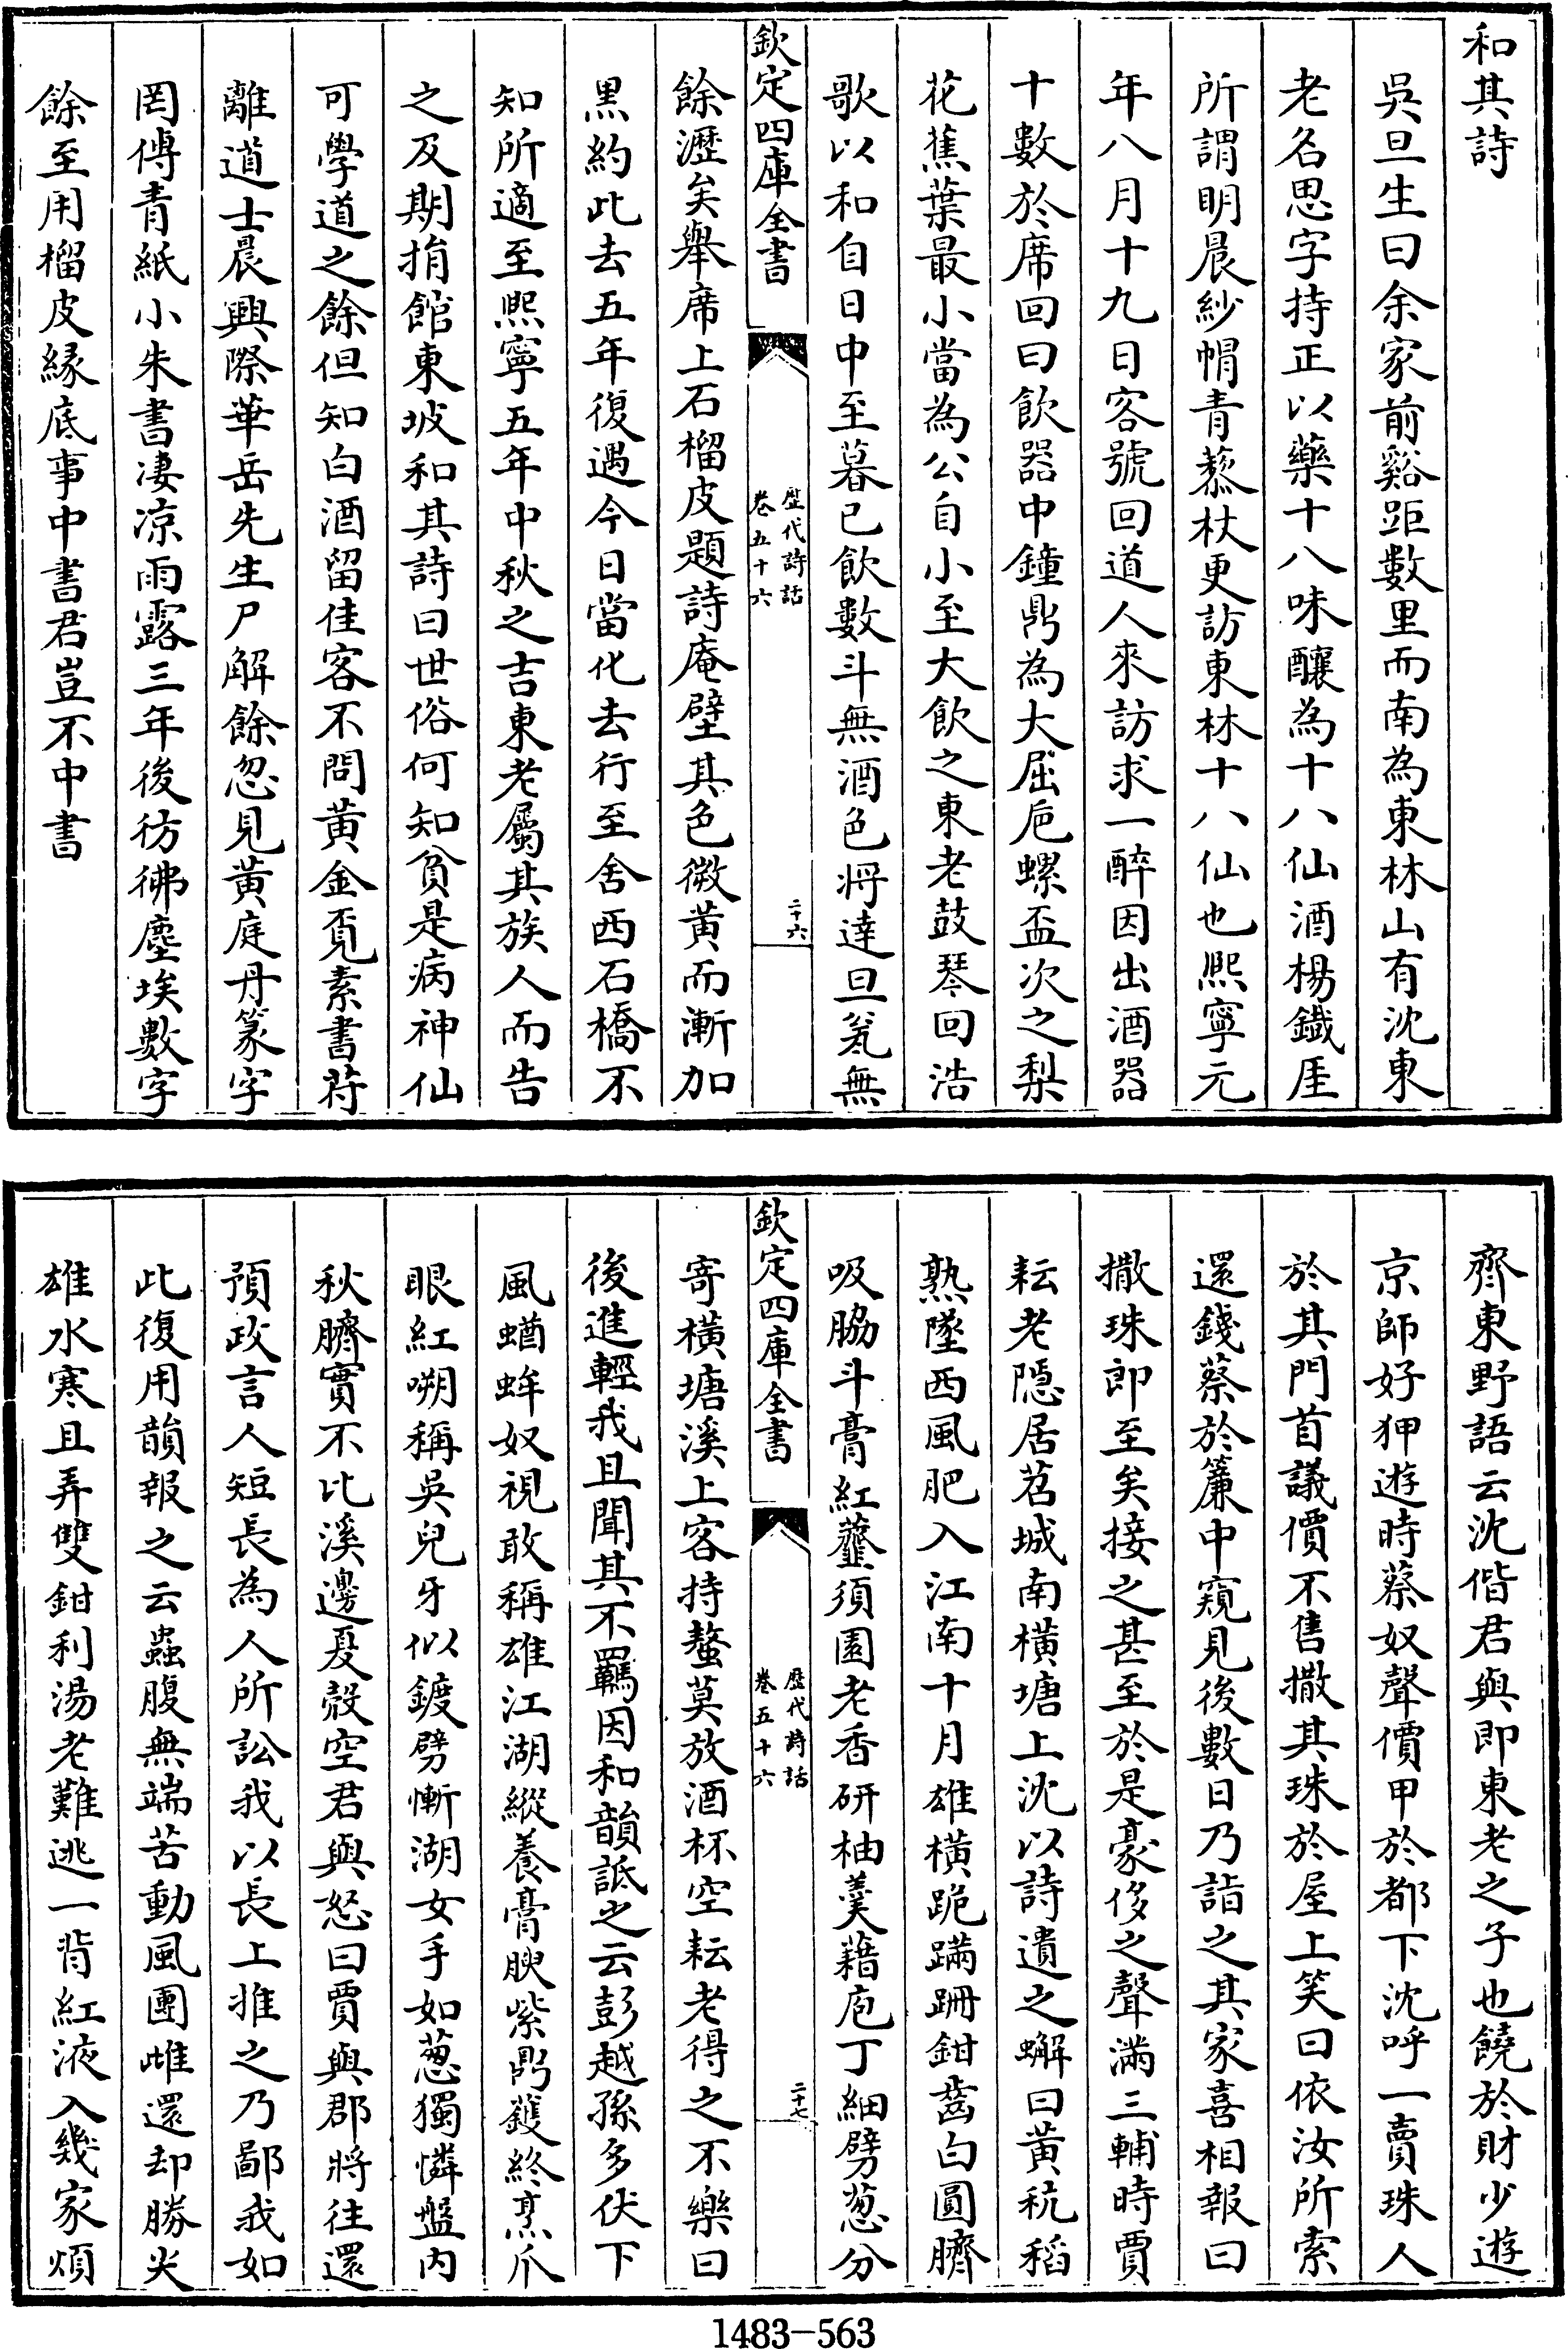 和其詩
吳旦生曰余家前谿距數里而南為東林山有沈東
老名思字持正以藥十八味釀為十八仙酒楊鐵厓
所謂明晨紗帽青藜杖更訪東林十八仙也熙寧元
年八月十九日客號回道人來訪求一醉因出酒器
十數於席回曰飲器中鐘鼎為大屈巵螺盃次之梨
花蕉葉最小當為公自小至大飲之東老鼓琴回浩
歌以和自日中至暮已飲數斗無酒色將達旦瓮無
欽定四庫全書
歷代詩話
卷五十六
二十六
餘瀝矣舉席上石榴皮題詩庵壁其色微黃而漸加
黑約此去五年復遇今日當化去行至舍西石橋不
知所適至熙寧五年中秋之吉東老屬其族人而告
之及期捐館東坡和其詩曰世俗何知貧是病神仙
可學道之餘但知白酒留佳客不問黃金覓素書苻
離道士晨興際華岳先生尸解餘忽見黃庭丹篆字
罔傳青紙小朱書凄涼雨露三年後彷彿塵埃數字
餘至用榴皮緣底事中書君豈不中書
齊東野語云沈偕君與即東老之子也饒於財少遊
京師好狎遊時蔡奴聲價甲於都下沈呼一賣珠人
於其門首議價不售撒其珠於屋上笑曰依汝所索
還錢蔡於簾中窺見後數日乃詣之其家喜相報曰
撒珠郎至矣接之甚至於是豪侈之聲滿三輔時賈
耘老隱居苕城南橫塘上沈以詩遺之蠏曰黃秔稻
熟墜西風肥入江南十月雄橫跪蹣跚鉗齒白圓臍
吸脇斗膏紅虀須園老香研柚羹藉庖丁細劈葱分
欽定四庫全書
歷代詩話
卷五十六
二十七
寄橫塘溪上客持螯莫放酒杯空耘老得之不樂曰
後進輕我且聞其不羈因和韻詆之云彭越孫多伏下
風蝤蛑奴視敢稱雄江湖縱養膏腴紫鼎鑊終烹爪
眼紅嘲稱吳兒牙似鍍劈慚湖女手如葱獨憐盤內
秋臍實不比溪邊夏殼空君與怒曰賈與郡將往還
預政言人短長為人所訟我以長上推之乃鄙我如
此復用韻報之云蟲腹無端苦動風團雌還却勝尖
雄水寒且弄雙鉗利湯老難逃一背紅液入幾家煩
1483-563